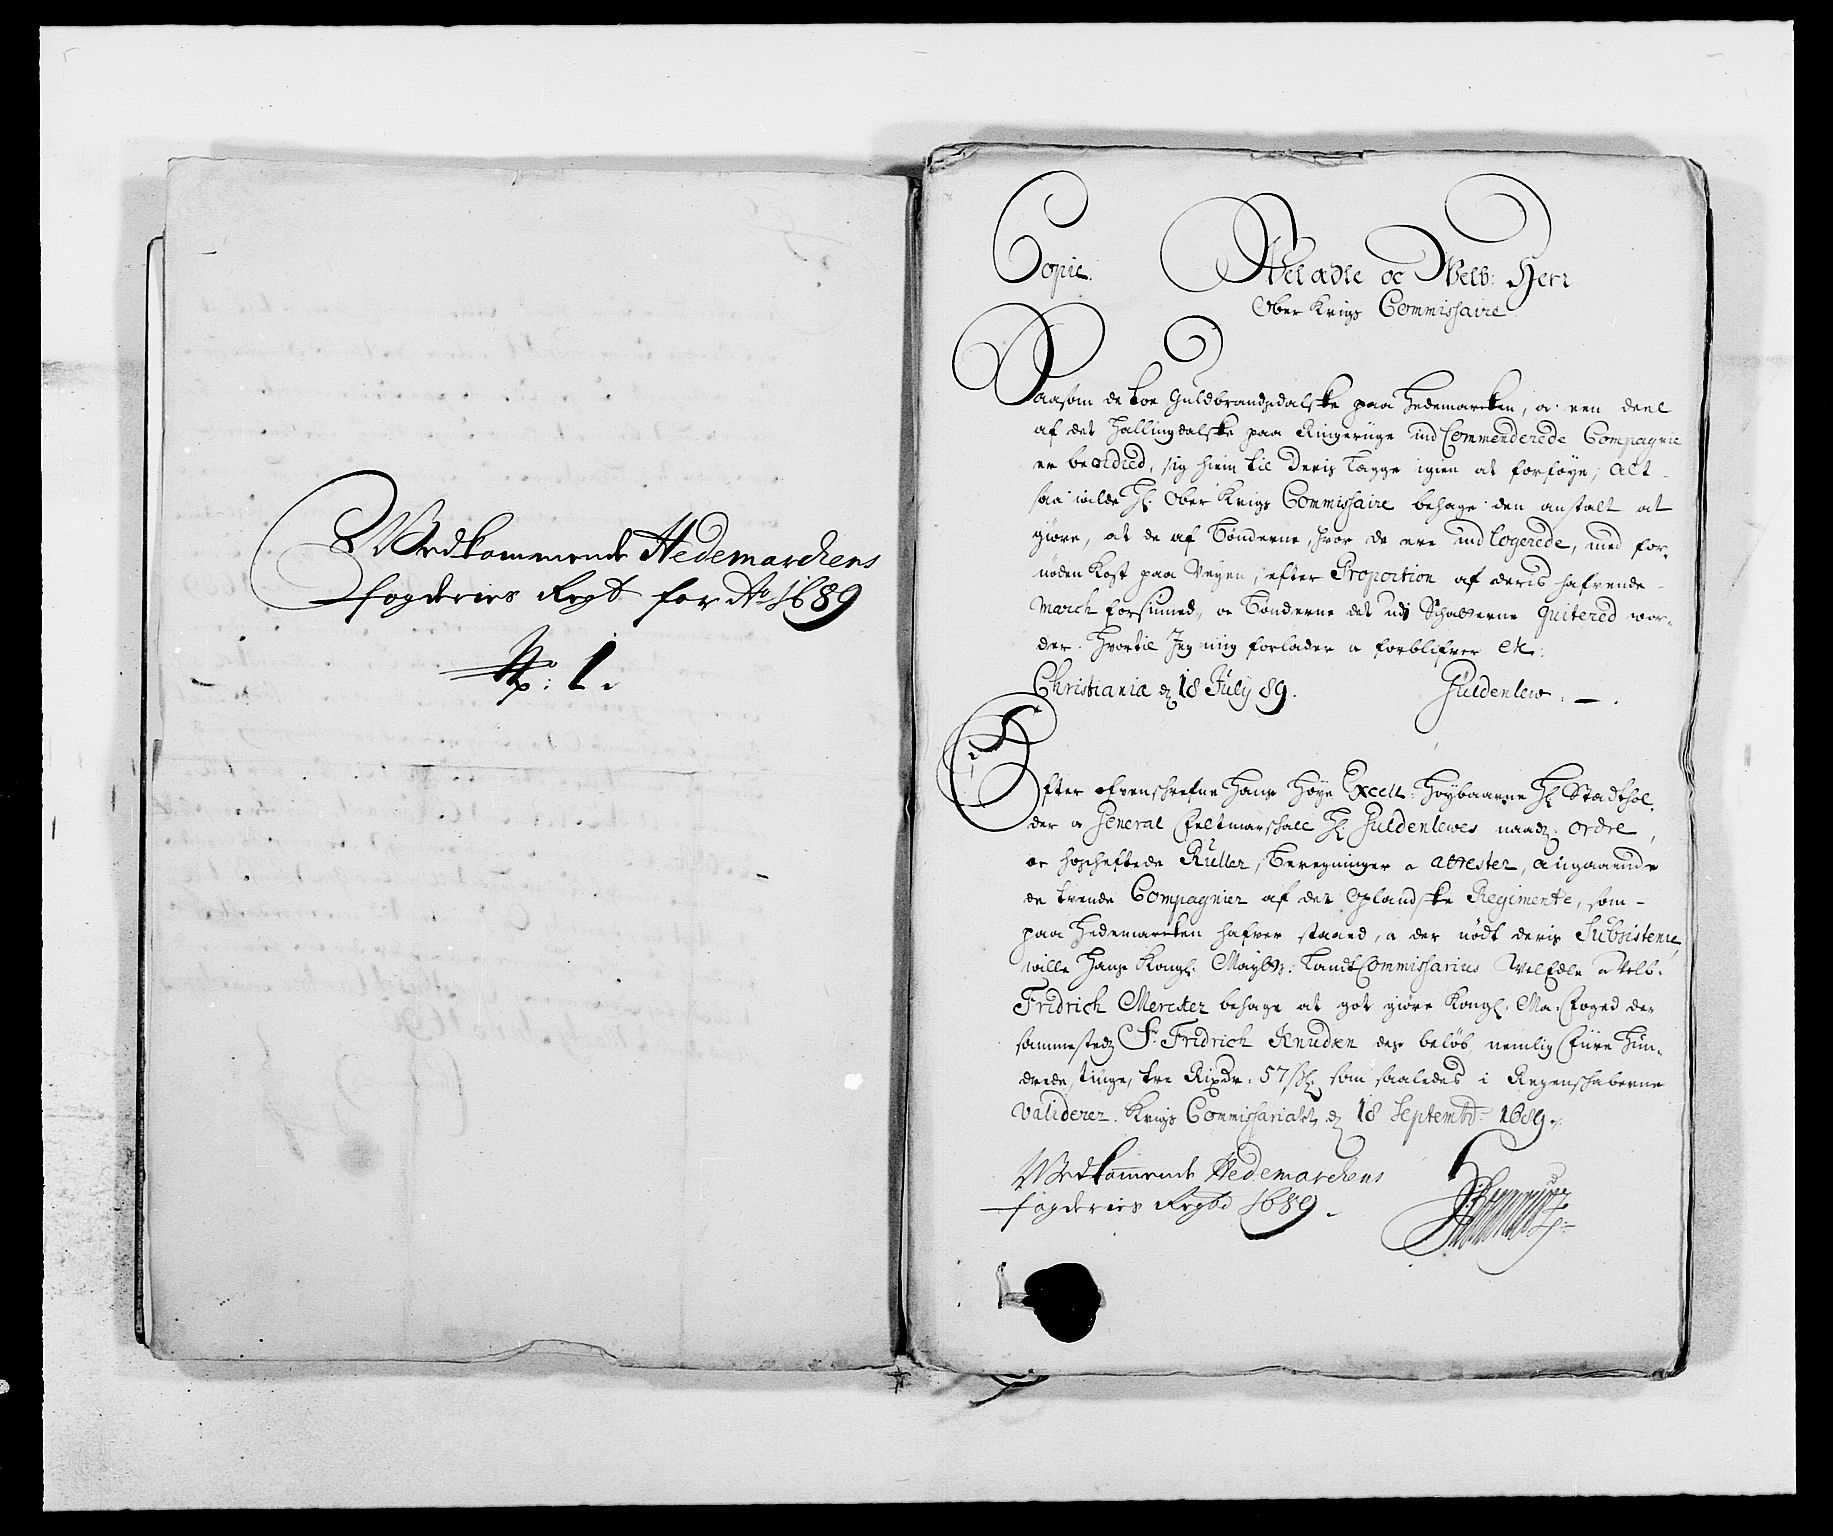 Wedkommende Hedemarchens
fogderies Regt for Ao 1689
No: 1.
Copie. Wel ædle oc Welb: Herr
Ober Krigs Commissaire
Saasom de toe Guldbrandsdalske paa Hedemarcken, oc een deel
af det Hallingdalske paa Ringerüge ind Commenderede Compagnie
er beordred, sig hiem til deris Lagge igien at forføye, alt-
saa wilde Hr. Ober Krigs Commissaire behage den anstalt at
giøre, at de af Bønderne, hvor de ere ind logerede, med for-
nøden Kost paa Veyen, efter Proportion af deris hafvende
March forsiuned, oc Bønderne det udj Schatterne quitered wor-
der. Hvortil Jeg mig forlader oc forblifver etc:
Christiania d 18 July 89. Güldenlew.
Efter ofvenschrefne Hans Høye Excell: Høybaarne Hr Stadthol-
der oc General Feltmarschall Hr: Guldenlewes naadg: ordre,
oc hosheftede Ruller, Beregninger oc attester, angaaende
de tvende Compagnier af det Oplandske Regimente, som-
paa Hedemarcken hafver staaed, oc der nødt deris Subsistence
wille Hans Kongl: Mayts: LandtCommissarius WelEdle oc Velb:
Fridrich Mercker behage at got giøre Kongl: Ma: Foged der
sammesteds Sr. Fridrich Knudsen des beløb, nemlig Fiire Hun-
drede, tiuge, tre Rixdr: 57 sk: som saaledes i Regenschaberne
validerer. Krigs Commissariatt d 18 Septembr: 1689.
Wedkommende Hedemarchens
fogderies Regtd 1689.